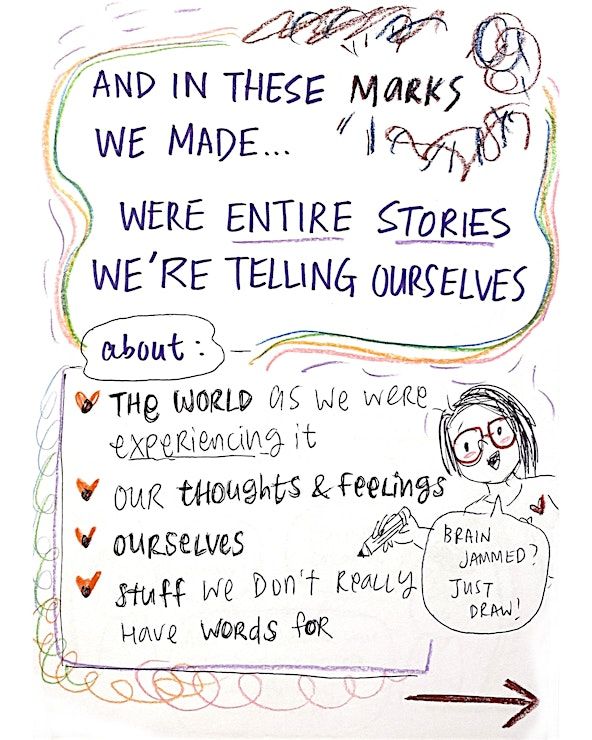 AND IN THESE MARKS
WE MADE...
WERE ENTIRE STORIES
WE'RE TELLING OURSELVES
about:
THE WORLD as we were
experiencing it
OUR thoughts & feelings
OURSELVES
Stuff we Don't Really
Have words for
BRAIN
JAMMED?
JUST
DRAW!